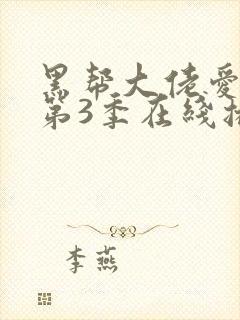 黑帮大佬爱
第3季在线播
李燕